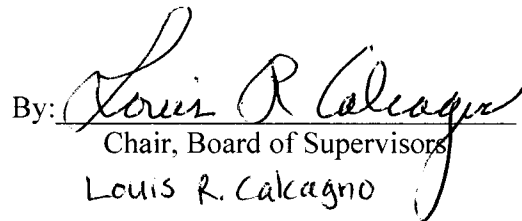 By: Louis R Calcagno
Chair, Board of Supervisors
Louis R. Calcagno